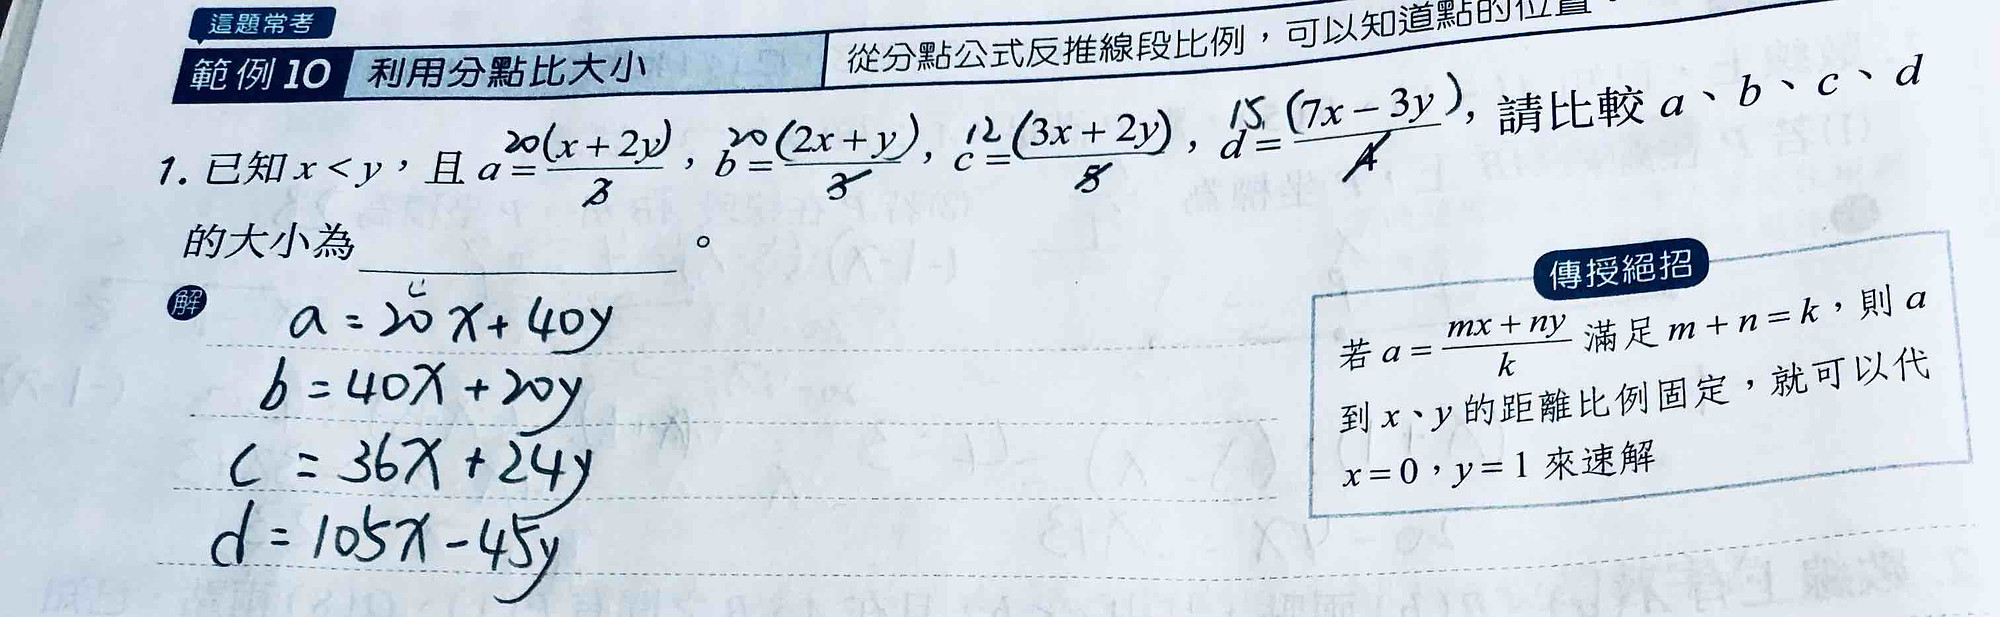 這題常考
範例10 利用分點比大小 從分點公式反推線段比例，可以知道點的位置。
1. 已知 x < y，且 a = 20(x + 2y)/3，b = 20(2x + y)/3，c = 12(3x + 2y)/5，d = 15(7x − 3y)/4，請比較 a、b、c、d
的大小為________。
解
a = 20x + 40y
b = 40x + 20y
c = 36x + 24y
d = 105x − 45y
傳授絕招
若 a = (mx + ny)/k 滿足 m + n = k，則 a
到 x、y 的距離比例固定，就可以代
x = 0，y = 1 來速解